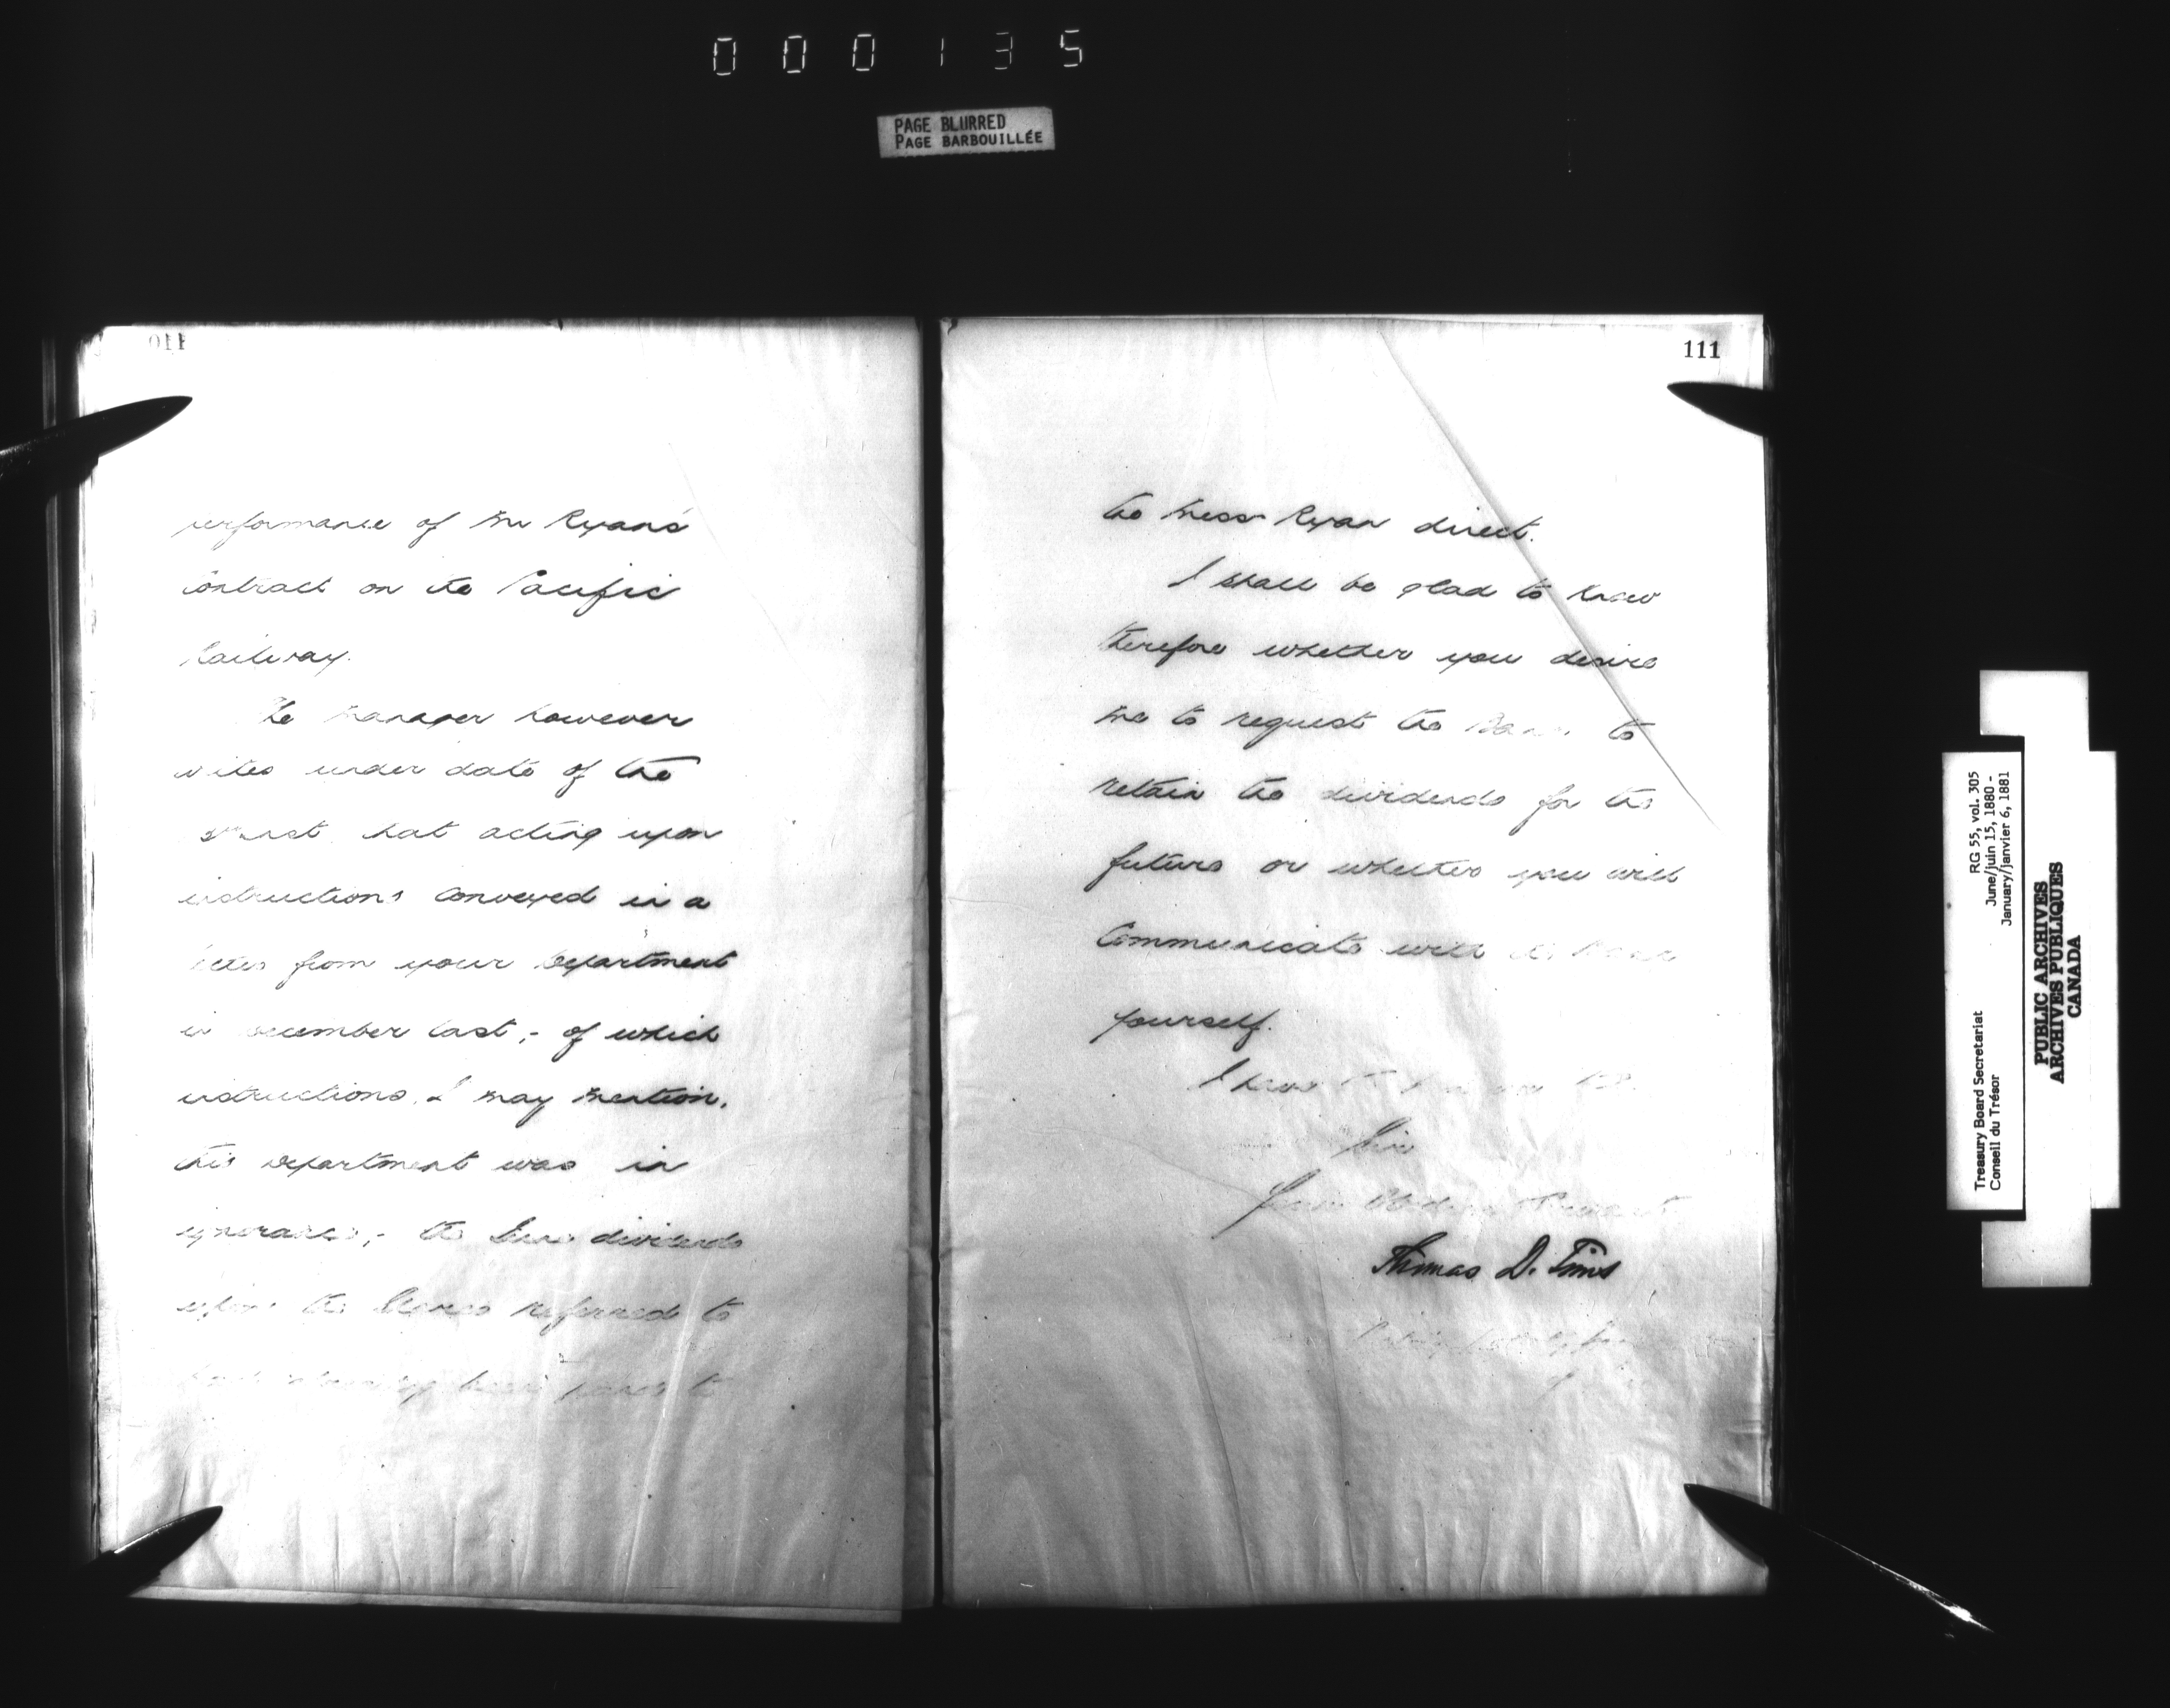 000135
PAGE BLURRED
PAGE BARBOUILLÉE
110
performance of Mr Ryan's
Contract on the Pacific
Railway.
The Manager however
writes under date of the
that acting upon
instructions conveyed in a
letter from your Department
in December last, - of which
instructions, I may mention,
this Department was in
ignorance, - the June dividends
upon the Shares referred to
to
111
to Mess Ryan direct.
I shall be glad to know
therefore whether you desire
me to request the Bank to
retain the dividends for the
future or whether you will
Communicate with the Bank
yourself.
I have
Sir
Your
Thomas D. Tims
RG 55, vol. 305
June/juin 15, 1880 -
January/janvier 6, 1881
Treasury Board Secretariat
Conseil du Trésor
PUBLIC ARCHIVES
ARCHIVES PUBLIQUES
CANADA